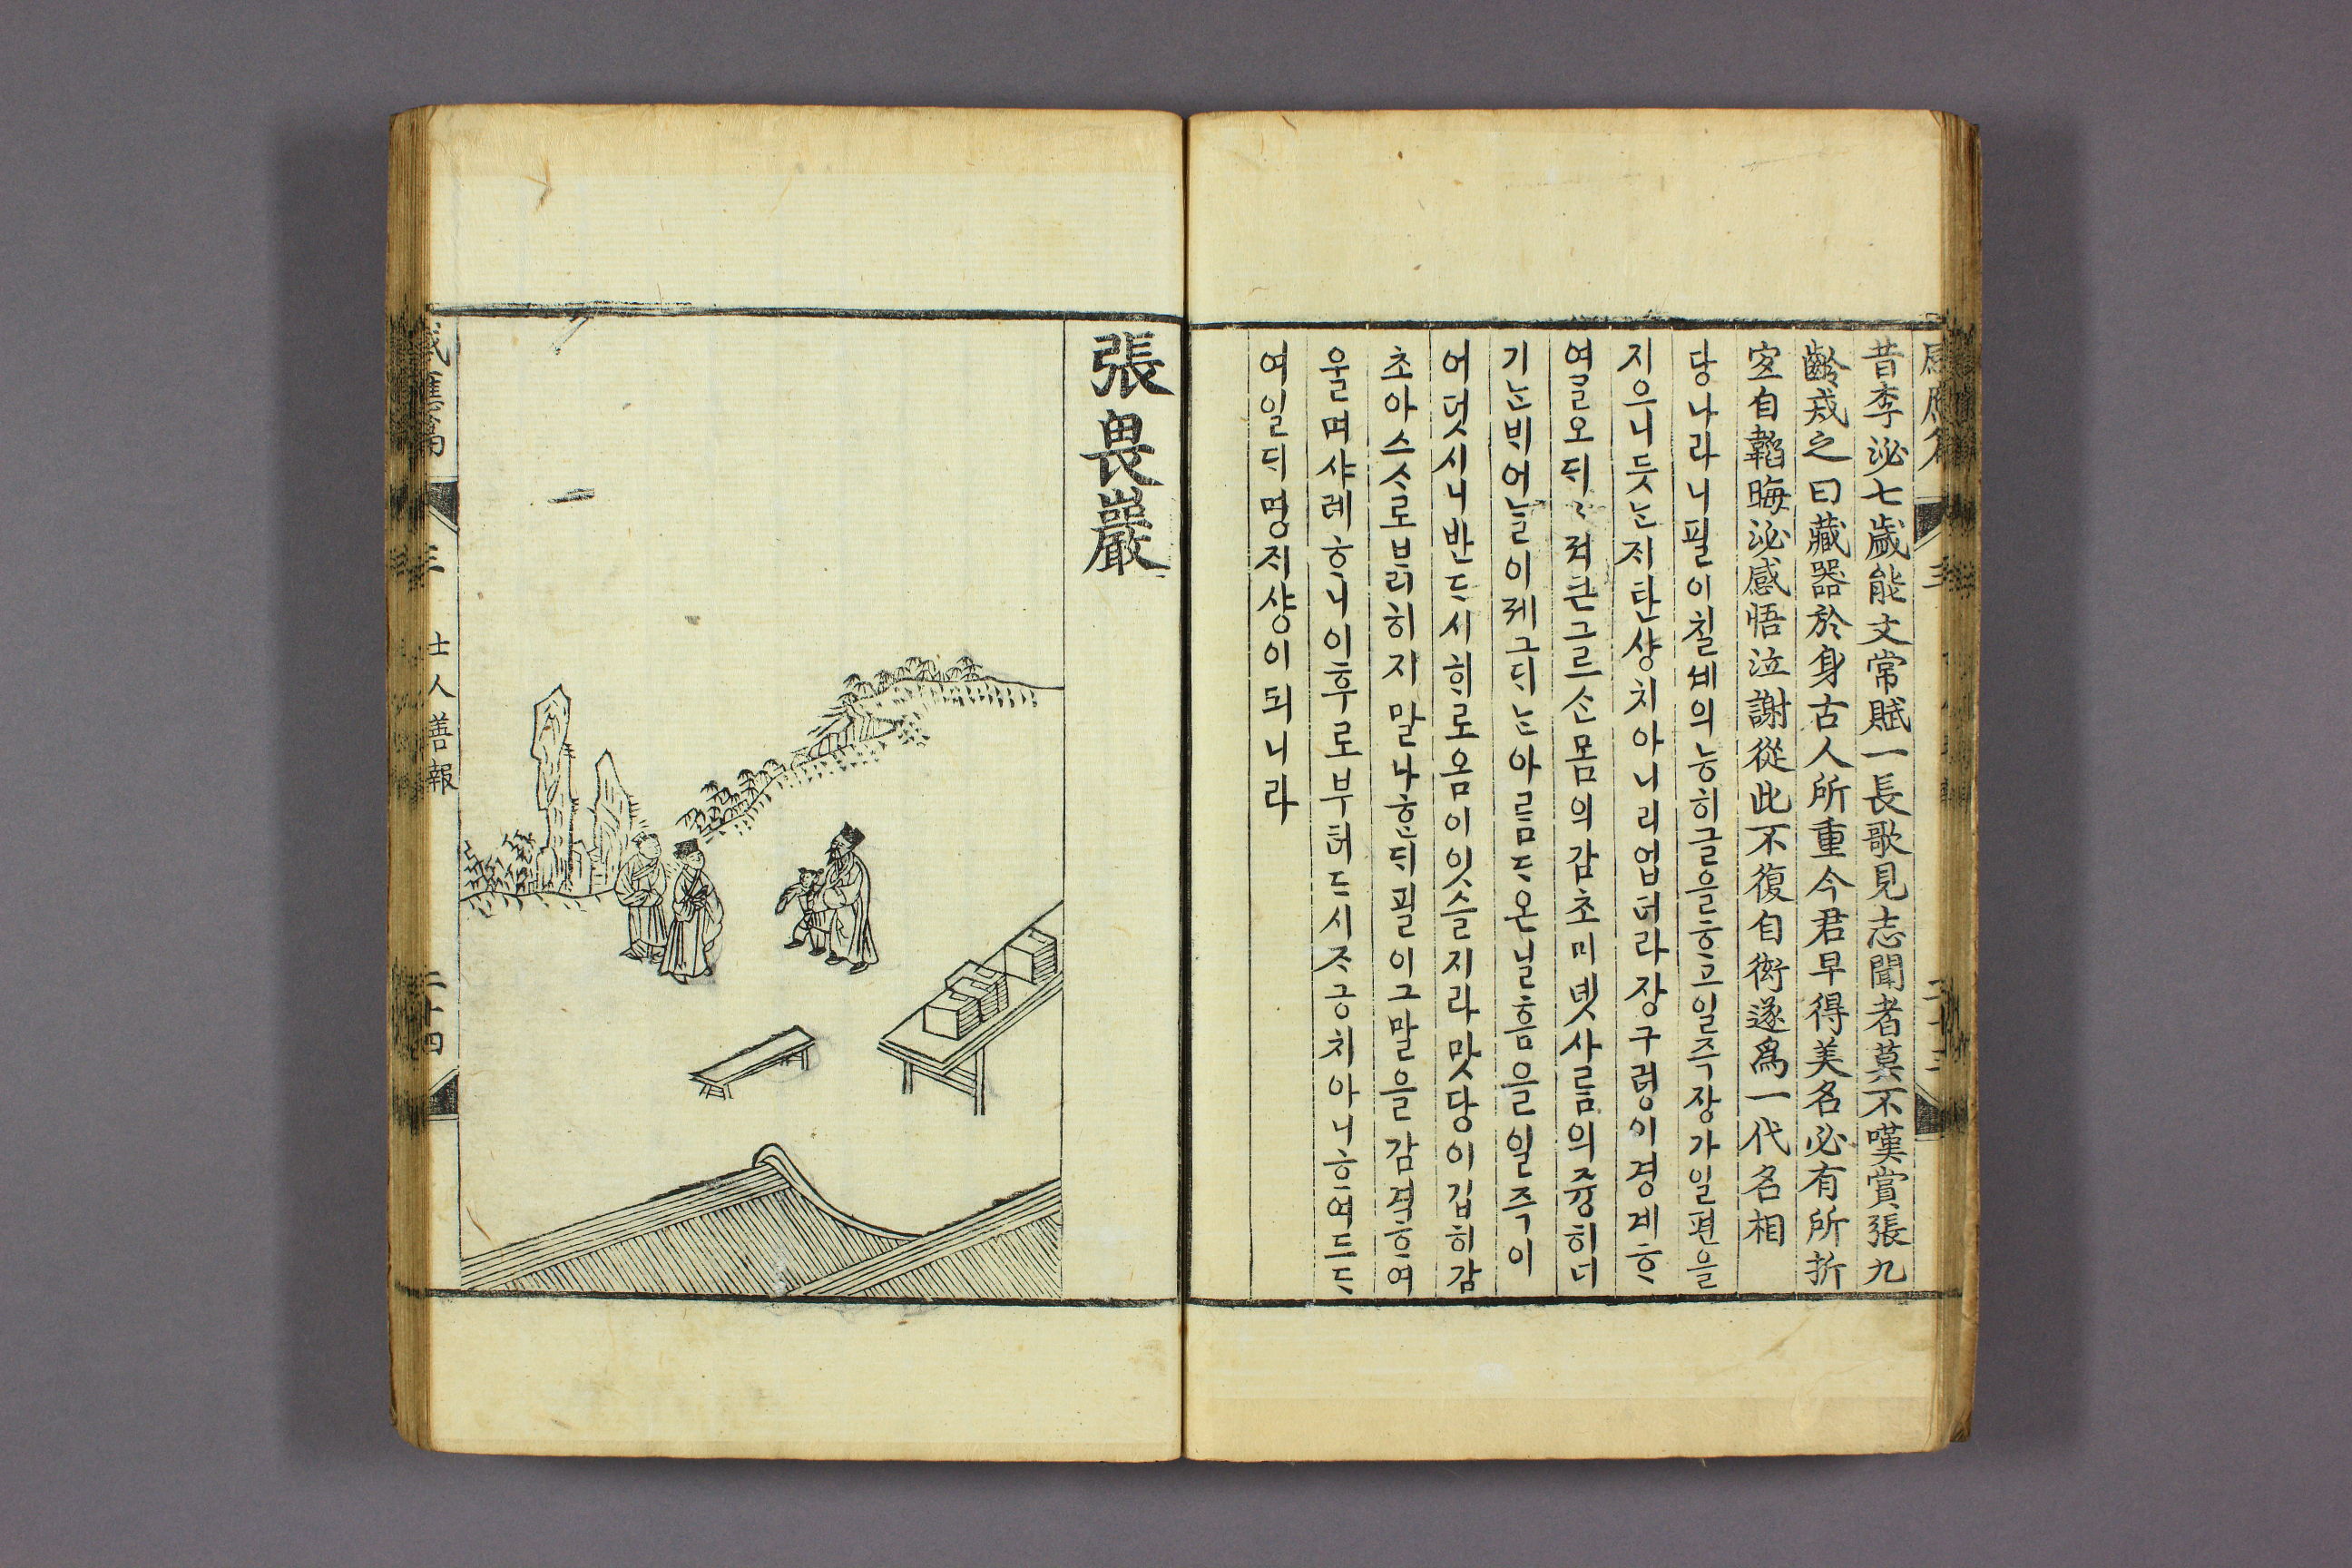 昔李泌七歲能文常賦一長歌見志聞者莫不嘆賞張九
齡戒之曰藏器於身古人所重今君早得美名必有所折
宜自韜晦泌感悟泣謝從此不復自衒遂爲一代名相
당나라니필이칠셰의능히글을ᄒᆞ고일즉쟝가일편을
지으니듯ᄂᆞᆫᄌᆡ탄샹치아니리업더라쟝구령이경계ᄒᆞ
여ᄀᆞᆯ오ᄃᆡᄌᆡ죄큰그ᄅᆞᄉᆞᆫ몸의감초미녯사ᄅᆞᆷ의즁히너
기ᄂᆞᆫᄇᆡ어ᄂᆞᆯ이제그ᄃᆡᄂᆞᆫ아ᄅᆞᆷᄃᆞ온닐홈을일즉이
어덧시니반ᄃᆞ시ᄒᆡ로옴이잇슬지라맛당이깁히감
초아스ᄉᆞ로ᄇᆞᆰ히지말나ᄒᆞᆫᄃᆡ필이그말을감격ᄒᆞ여
울며샤례ᄒᆞ니이후로부터ᄃᆞ시ᄌᆞ긍치아니ᄒᆞ여드ᄃᆞ
여일ᄃᆡ명ᄌᆡ샹이되니라
張畏巖
感應篇 三 士人善報 二十四